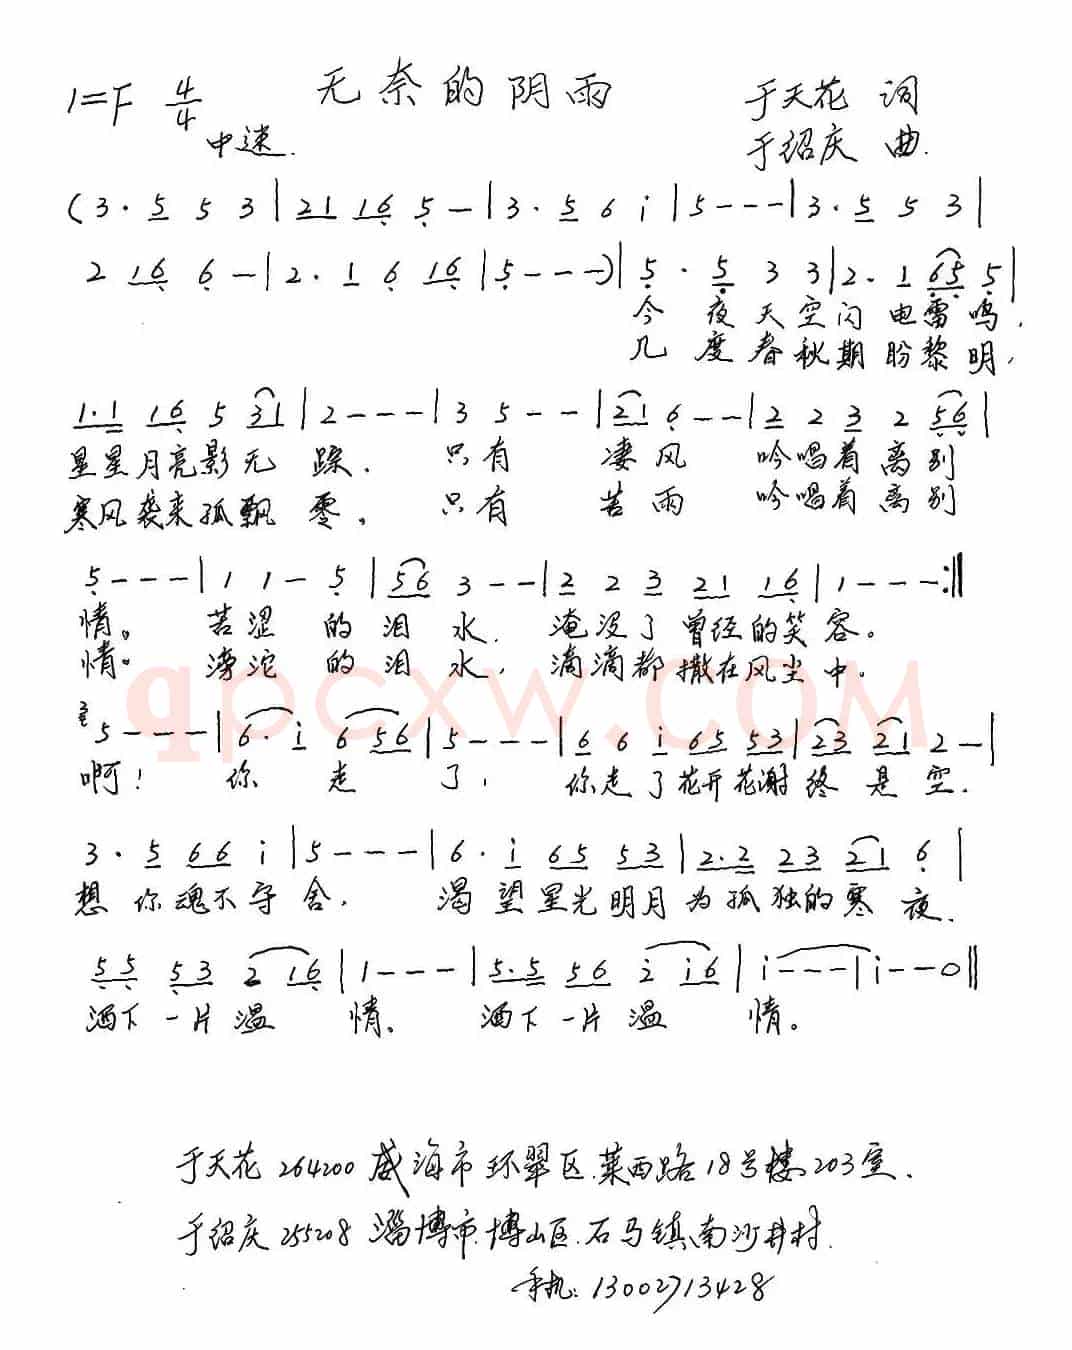 1=F 4/4 无奈的阴雨 于天花 词
中速. 于绍庆 曲.
(3· 5 5 3 | 21 16 5 – | 3· 5 6 i | 5 - - - | 3· 5 5 3 |
2 16 6 – | 2· 1 6 16 | 5 - - - ) | 5 · 5 3 3 | 2· 1 65 5 |
今 夜 天 空 闪 电 雷 鸣,
几 度 春 秋 期 盼 黎 明,
1·1 16 5 31 | 2 - - - | 3 5 - - | 21 6 - - | 2 2 3 2 56 |
星星月亮影无 踪. 只有 凄风 吟唱着离别
寒风袭来孤飘 零。 只有 苦雨 吟唱着离别
5 - - - | 1 1 – 5 | 56 3 - - | 2 2 3 21 16 | 1 - - - :||
情。 苦涩 的 泪 水. 淹没了曾经的笑容。
情。 滂沱 的 泪 水, 滴滴都撒在风尘中。
qpcxw.com
5 - - - | 6· i 6 56 | 5 - - - | 6 6 i 65 53 | 23 21 2 – |
啊! 你 走 了, 你走了花开花谢 终 是 空.
3· 5 66 i | 5 - - - | 6· i 65 53 | 2·2 23 21 6 |
想 你魂不守舍, 渴望星光明月为孤独的寒夜.
55 53 2 16 | 1 - - - | 5·5 56 i i6 | i - - - | i - - 0 ||
洒下一片温 情、 洒下一片温 情。
于天花 264200 威海市环翠区.莱西路18号楼203室.
于绍庆 255208 淄博市.博山区.石马镇.南沙井村.
手机: 13002713428